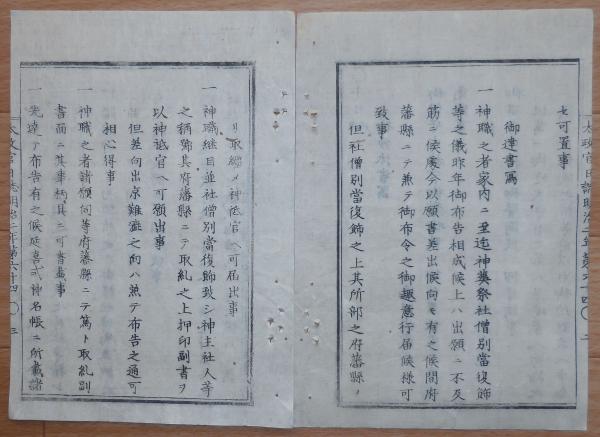 太政官日誌明治二年第六十四 〇 二
七可置事
御達書寫
一 神職之者家內ニ至迄神葬祭社僧別當復飾
等之儀昨年御布告相成候上ハ出願ニ不及
筋ニ候處今以願書差出候向モ有之候間府
藩縣ニテ兼テ御布令之御趣意行届候様可
致事
但社僧別當復飾之上其所部之府藩縣ノ
リ取纏メ神祇官ヘ可届出事
一 神職継目並社僧別當復飾致シ神主社人等
之稱號其府藩縣ニテ取糺之上押印副書ヲ
以神祇官ヘ可願出事
但差向出京難澁之向ハ兼テ布告之通可
相心得事
一 神職之者諸願伺等府藩縣ニテ篤ト取糺副
書面ニ其事柄具ニ可書載事
一 先達テ布告有之候延喜式神名帳ニ所載諸
太政官日誌明治二年第六十四 〇 三